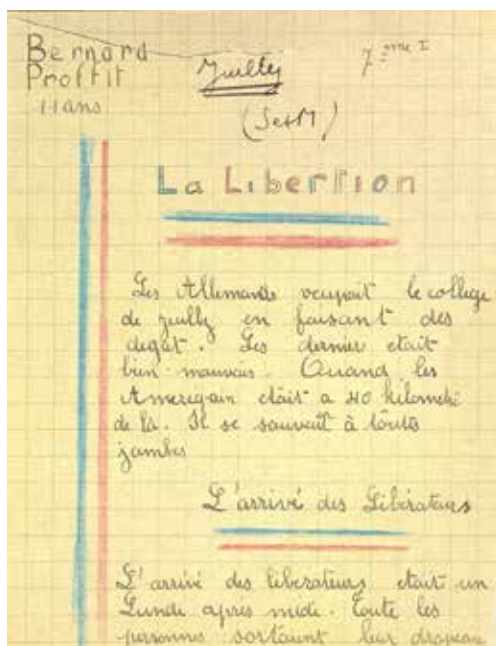 Bernard
Proffit
11 ans
Juilly
7ème I
(S et M)
La Libertion
Les Allemands ocupait le collège
de juilly en faisant des
degat. Les dernier etait
bien mauvais. Quand les
Ameregain etait a 40 kilometre
de là. Il se sauvait à toutes
jambes
L'arrivé des Libérateurs
L'arrivé des liberateurs etait un
Lundi apres midi. Toute les
personnes sortaient leur drapeau